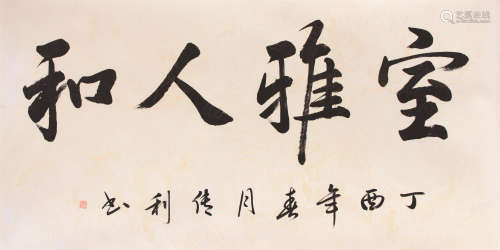 室雅人和
丁酉年春月传利书